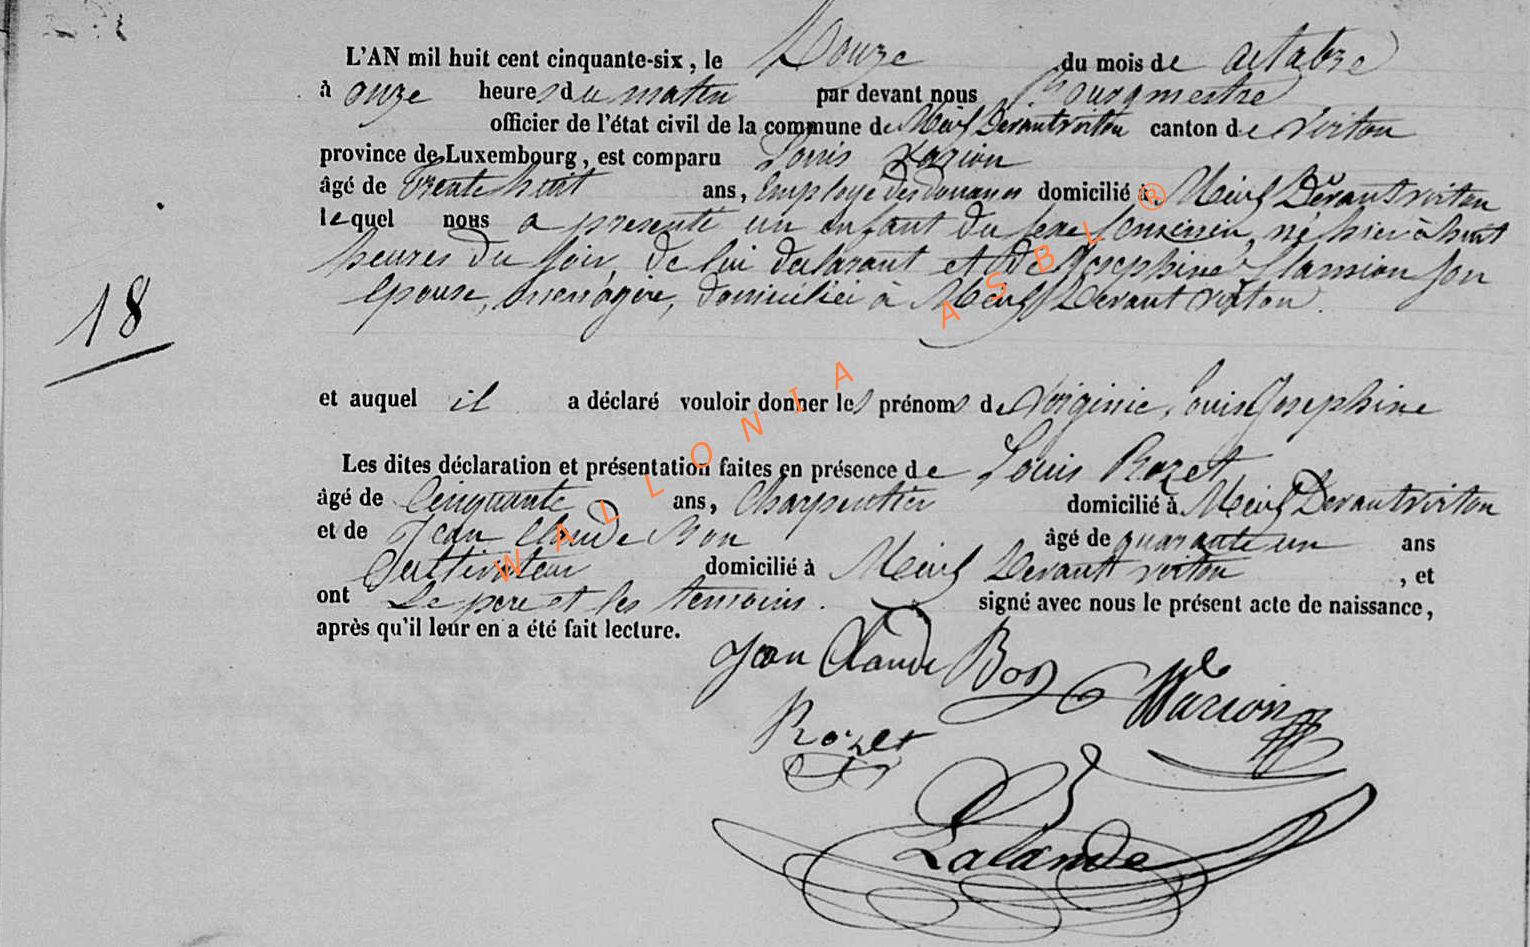 L'AN mil huit cent cinquante-six, le Douze du mois de octobre
à onze heures du matin par devant nous Bourgmestre
officier de l'état civil de la commune de Meix Devant virton canton de virton
province de Luxembourg, est comparu Louis
âgé de Trente huit ans, Employé des douanes domicilié à Meix Devant virton
lequel nous a presenté un enfant du sexe feminin, né hier à huit
heures du soir, de lui declarant et de Josephine son
epouse, menagère, domiciliée à Meix Devant virton.
18
et auquel il a déclaré vouloir donner les prénoms de Virginie, Louise Josephine
Les dites déclaration et présentation faites en présence de Louis Rozet
âgé de Cinquante ans, Charpentier domicilié à Meix Devant virton
et de Jean Claude Bon âgé de quarante un ans
Cultivateur domicilié à Meix Devant virton, et
ont Le pere et les temoins. signé avec nous le présent acte de naissance,
après qu'il leur en a été fait lecture.
Jean Claude Bon
Rozet
Lalande
WALLONIA ASBL ®